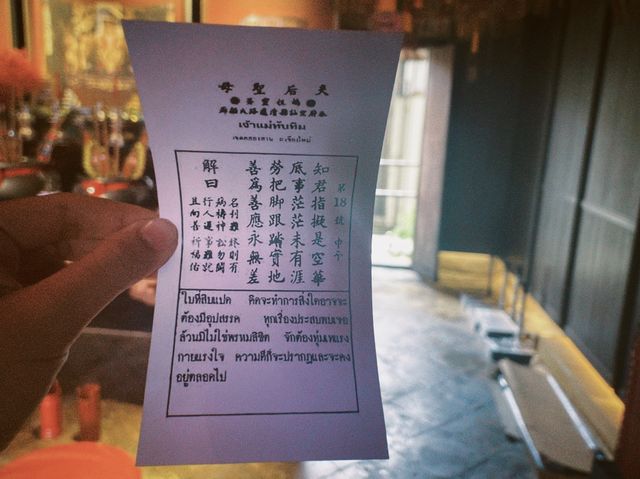 天后聖母
媽祖靈
เจ้าแม่ทับทิม
第18號 中平
知君指擬是空華
底事茫茫未有涯
勞把脚跟踏實地
善為善應永無差
解曰
名利難 終則有
病禱神 訟勿鬭
行人遲 事難
且向善 福佑
ใบที่สิบแปด คิดจะทำการสิ่งใดอาจจะ
ต้องมีอุปสรรค ทุกเรื่องประสบพบเจอ
ล้วนมิไม่ใช่พรหมลิขิต จักต้องทุ่มเทแรง
กายแรงใจ ความดีก็จะปรากฏและจะคง
อยู่ตลอดไป